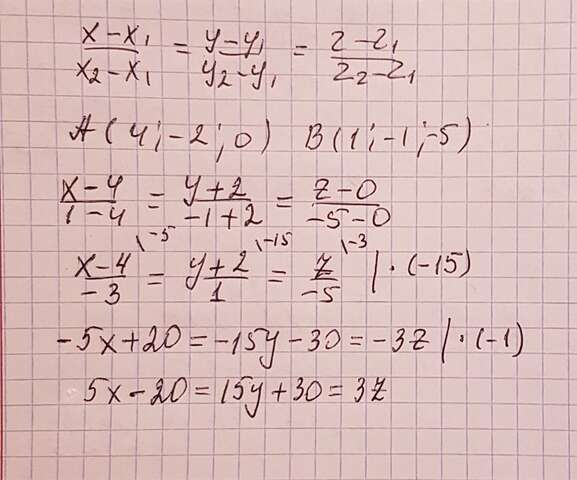 (x - x₁)/(x₂ - x₁) = (y - y₁)/(y₂ - y₁) = (z - z₁)/(z₂ - z₁)
A(4; -2; 0) B(1; -1; -5)
(x - 4)/(1 - 4) = (y + 2)/(-1 + 2) = (z - 0)/(-5 - 0)
(x - 4)/(-3) \-5 = (y + 2)/1 \-15 = z/(-5) \-3 | · (-15)
-5x + 20 = -15y - 30 = -3z | · (-1)
5x - 20 = 15y + 30 = 3z